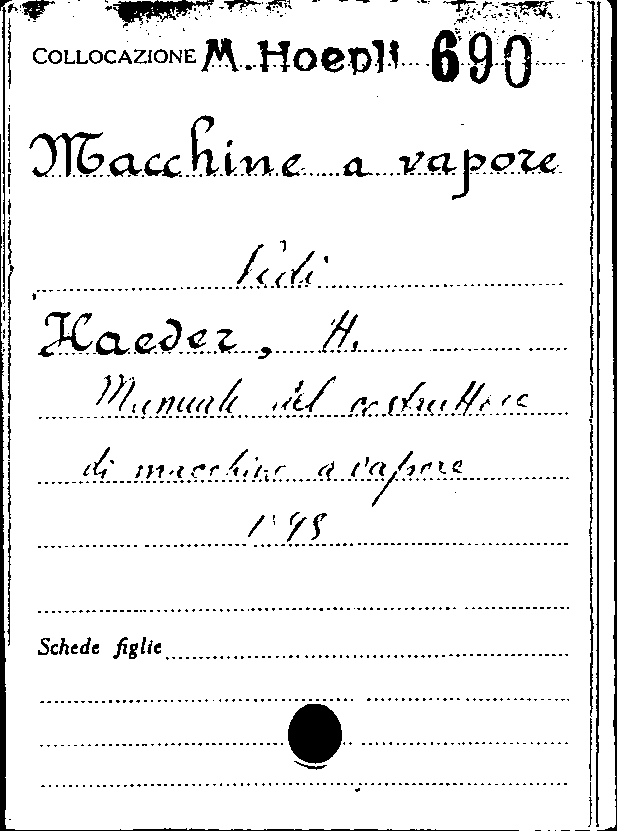 COLLOCAZIONE M. Hoepli 690
Macchine a vapore
Vedi
Haeder, H.
Manuale del costruttore
di macchine a vapore
Schede figlie